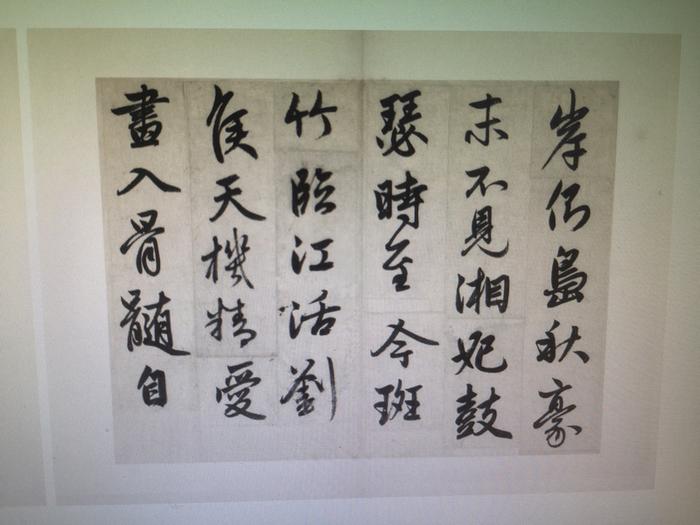 岸側島秋豪
末不見湘妃鼓
瑟時至今斑
竹臨江活劉
侯天機精愛
畫入骨髓自